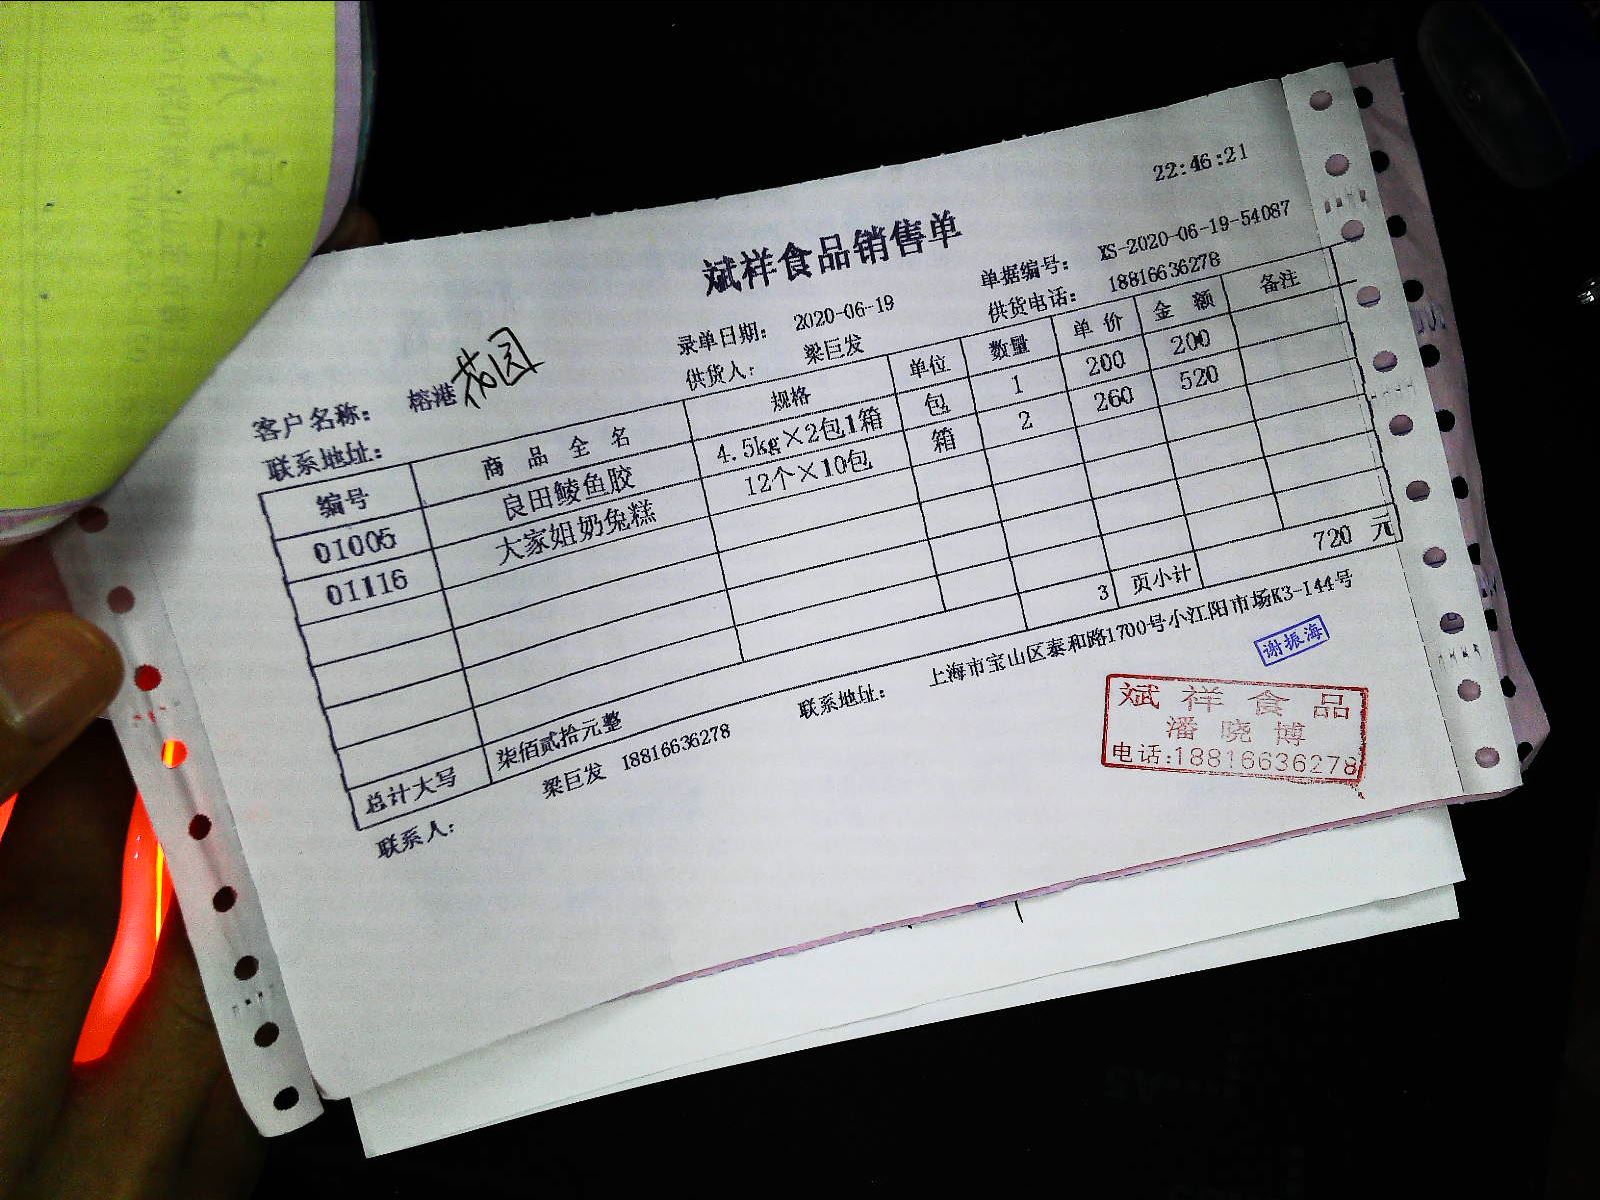 22:46:21
斌祥食品销售单
录单日期: 2020-06-19 单据编号: XS-2020-06-19-54087
客户名称: 榕港花园 供货人: 梁巨发 供货电话: 18816636278
联系地址:
编号 商品全名 规格 单位 数量 单价 金额 备注
01005 良田鲮鱼胶 4.5kg×2包1箱 包 1 200 200
01116 大家姐奶兔糕 12个×10包 箱 2 260 520
3 页小计 720 元
总计大写 柒佰贰拾元整
联系人: 梁巨发 18816636278 联系地址: 上海市宝山区泰和路1700号小江阳市场K3-144号
谢振海
斌祥食品
潘晓博
电话:18816636278